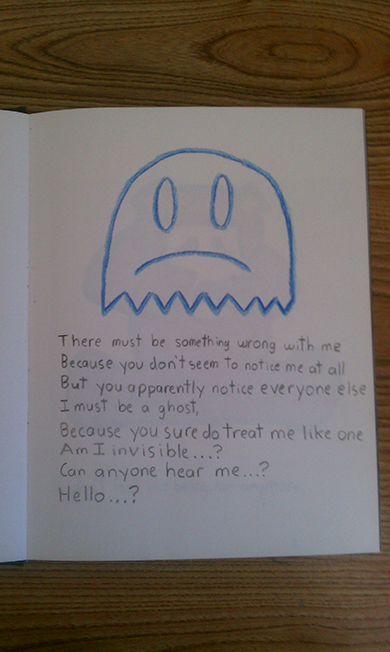 There must be something wrong with me
Because you don't seem to notice me at all
But you apparently notice everyone else
I must be a ghost,
Because you sure do treat me like one
Am I invisible...?
Can anyone hear me...?
Hello...?